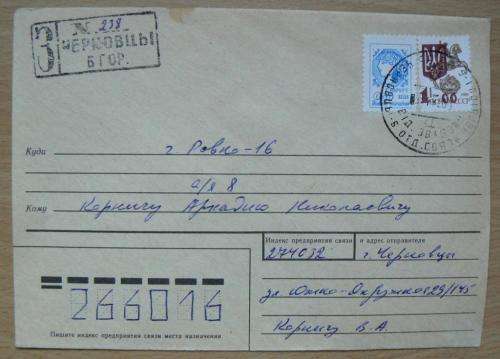 З № 238
ЧЕРНОВЦЫ
6 ГОР.
1.00
СССР
Куда г. Ровно-16
а/я 8
Кому Корничу Аркадию Николаевичу
Индекс предприятия связи и адрес отправителя
274032 г. Черновцы
ул. Южно-Окружная 29/145
Корничу В. А.
266016
Пишите индекс предприятия связи места назначения